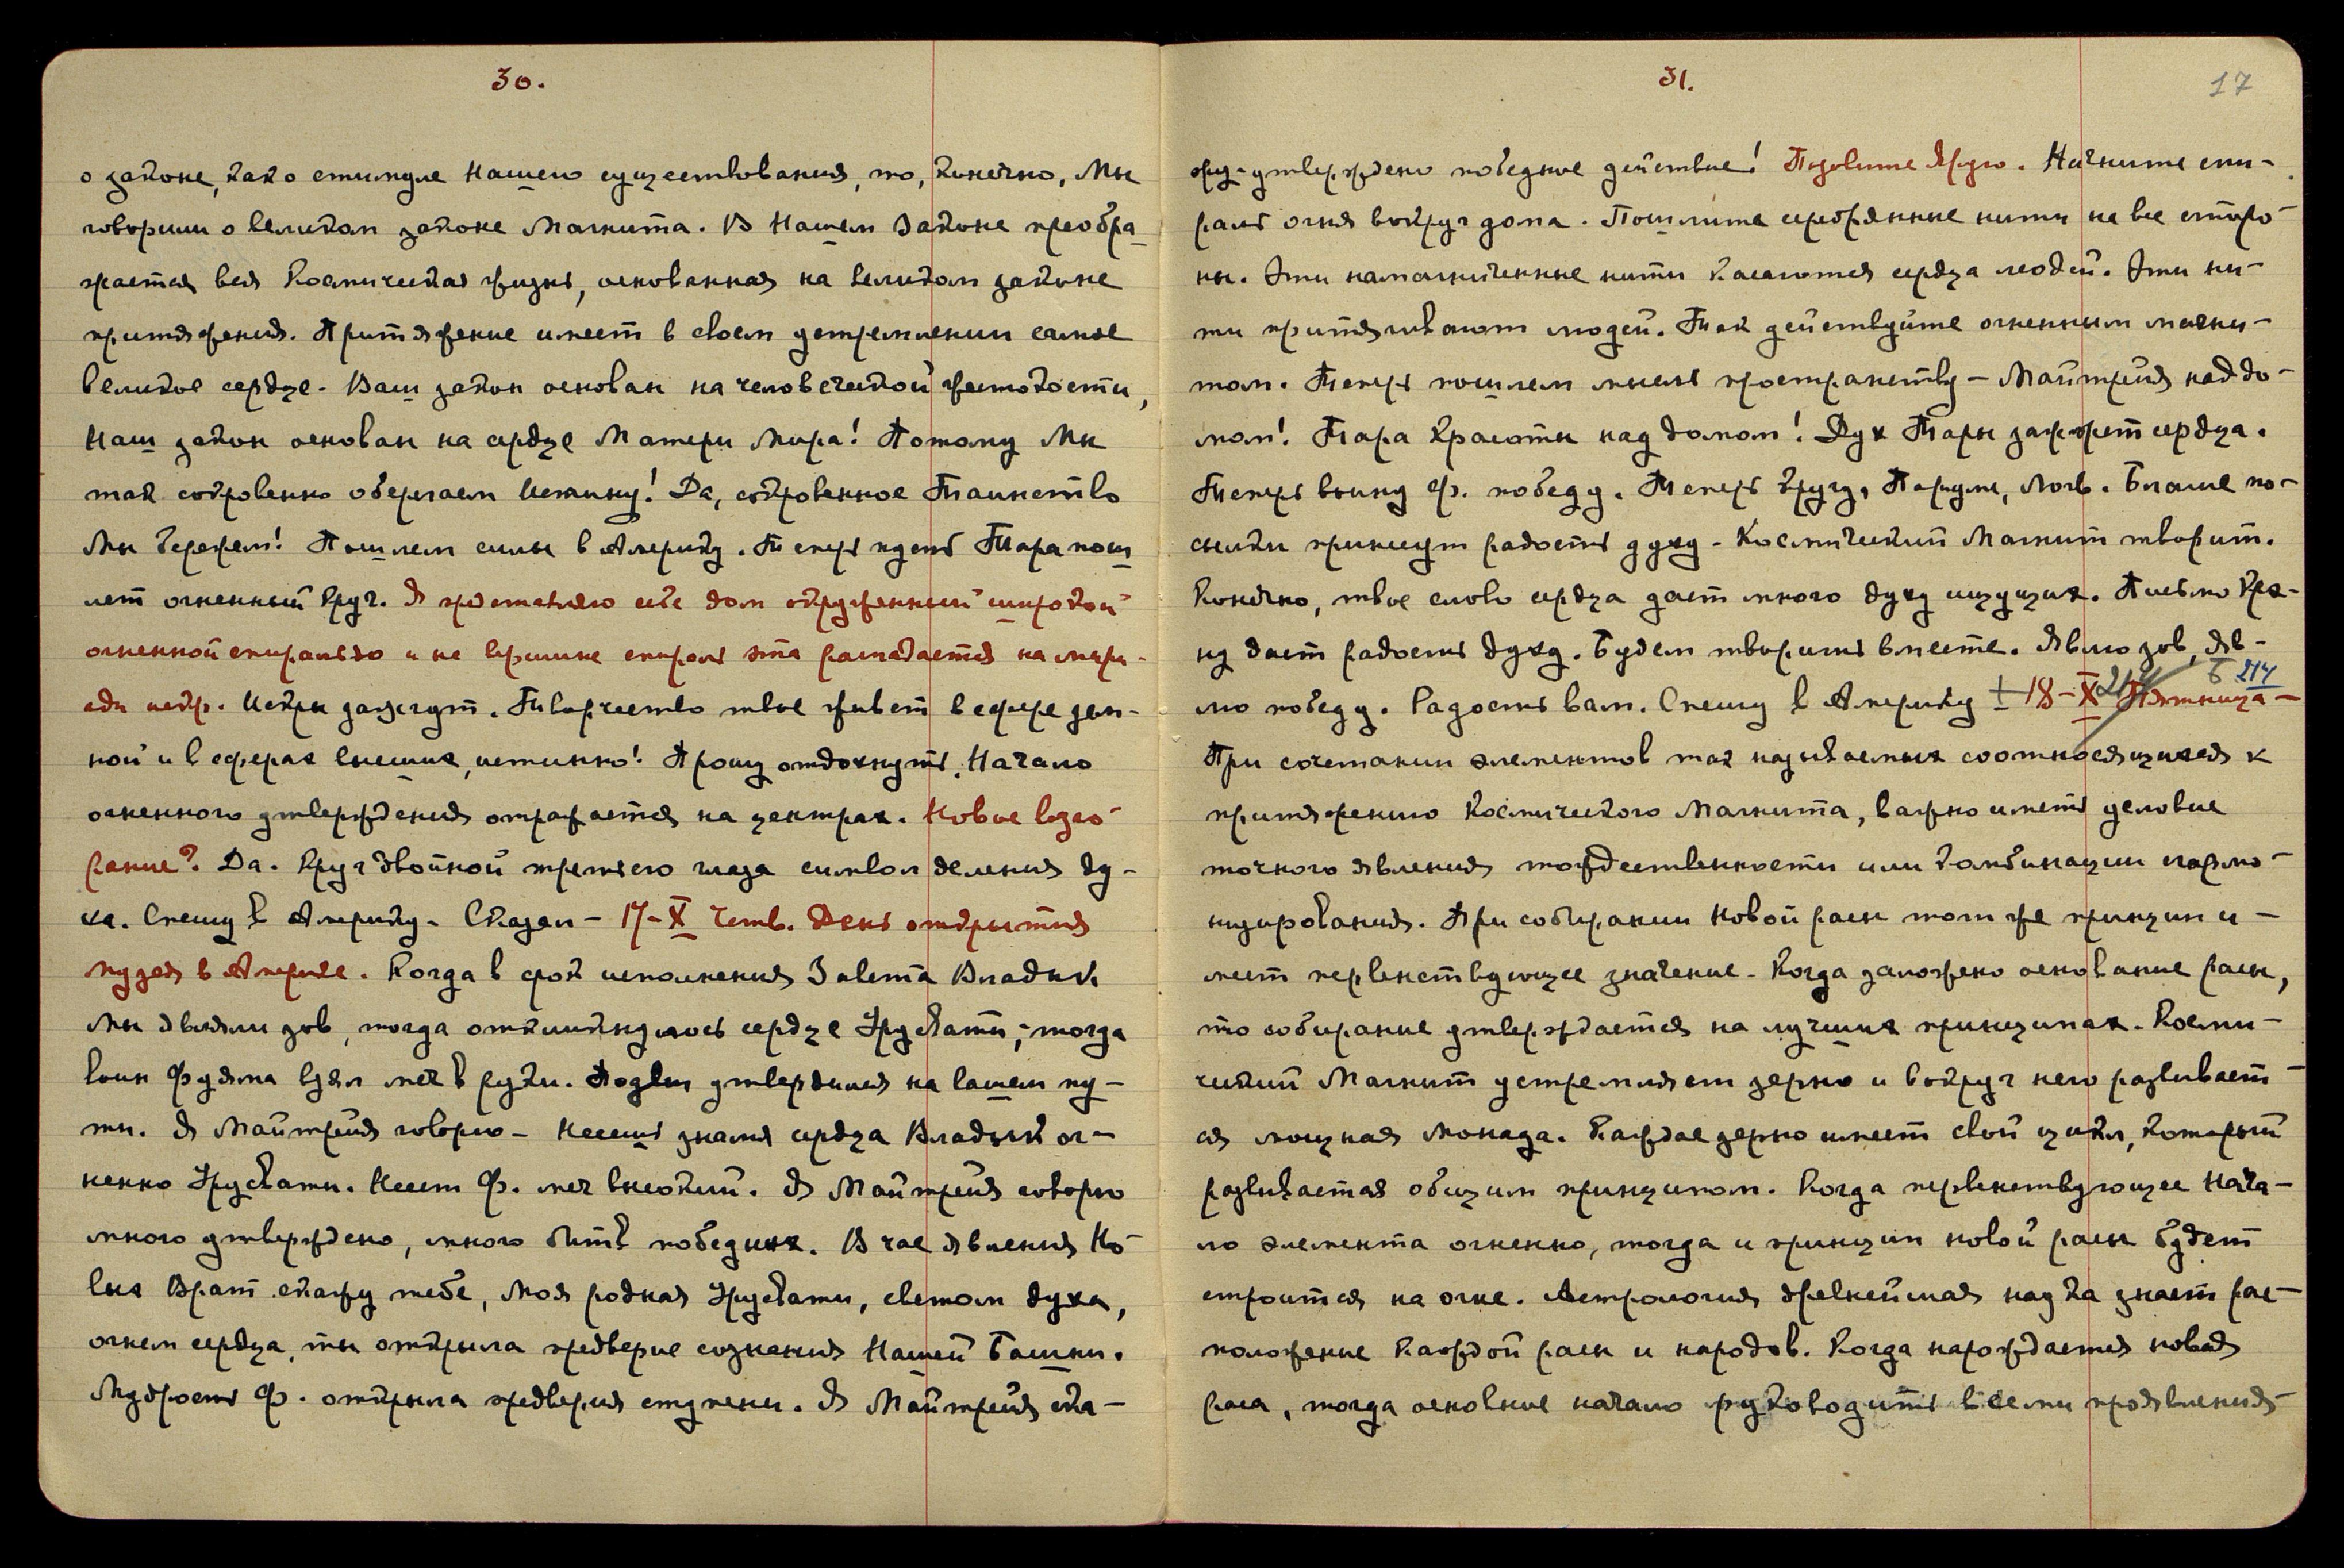 30.
о законе, как о стимуле Нашего существования, то, конечно, Мы
говорили о великом законе Магнита. В Нашем Законе преобра-
жается вся Космическая жизнь, основанная на великом законе
притяжения. Притяжение имеет в своем устремлении самое
великое сердце. Ваш закон основан на человеческой жестокости,
Наш закон основан на сердце Матери Мира! Потому Мы
так сокровенно оберегаем Истину! Да, сокровенное Таинство
Мы бережем! Пошлем силы в Америку. Теперь пусть Тара пош-
лет огненный круг. Я представляю себе дом окруженный широкой
огненной спиралью и на вершине спираль эта распадается на мири-
ады искр. Искры зажгут. Творчество твое живет в сфере зем-
ной и в сферах высших, истинно! Прошу отдохнуть. Начало
огненного утверждения отражается на центрах. Новое возго-
рание? Да. Круг двойной третьего глаза символ деления ду-
ха. Спешу в Америку. Сказал – 17–X Четв. День открытия
музея в Америке. Когда в срок исполнения Завета Владык
мы являли зов, тогда откликнулось сердце Урусвати; тогда
воин Фуяма взял меч в руки. Подвиг утвердился на вашем пу-
ти. Я Майтрейя говорю – Несешь знамя сердца Владык ог-
ненно Урусвати. Несет Ф. меч высокий. Я Майтрейя говорю
много утверждено, много битв победных. В час явления Но-
вых Врат скажу тебе, Моя родная Урусвати, светом духа,
огнем сердца, ты открыла предверие сознания Нашей Башни.
Мудрость Ф. открыла предверия ступени. Я Майтрейя ска-
31.
17
жу – утверждено победное действие! Позовите Ярую. Начните спи-
раль огня вокруг дома. Пошлите серебрянные нити на все сторо-
ны. Эти намагниченные нити касаются сердца людей. Эти ни-
ти притягивают людей. Так действуйте огненным магни-
том. Теперь пошлем мысль пространству – Майтрейя над до-
мом! Тара Красоты над домом! Дух Тары зажжет сердца.
Теперь воину Ф. победу. Теперь кругу, Порума, Логв. Благие по-
сылки принесут радость духу. Космический Магнит творит.
Конечно, твое слово сердца дает много духу ищущих. Письмо Кра-
ну дает радость духу. Будем творить вместе. Являю зов, яв-
ляю победу. Радость вам. Спешу в Америку + 18–X Пятница –
Б 214
При сочетании элементов так называемых соотносящихся к
притяжению Космического Магнита, важно иметь условие
точного явления тождественности или комбинации гармо-
низирования. При собирании новой расы тот же принцип и-
меет первенствующее значение. Когда заложено основание расы,
то собирание утверждается на лучших принципах. Косми-
ческий Магнит устремляет зерно и вокруг него развивает-
ся мощная монада. Каждое зерно имеет свой цикл, который
развивается общим принципом. Когда первенствующее нача-
ло элемента огненно, тогда и принцип новой расы будет
строиться на огне. Астрология древнейшая наука знает рас-
положение каждой расы и народов. Когда нарождается новая
раса, тогда основное начало руководить всеми проявления-